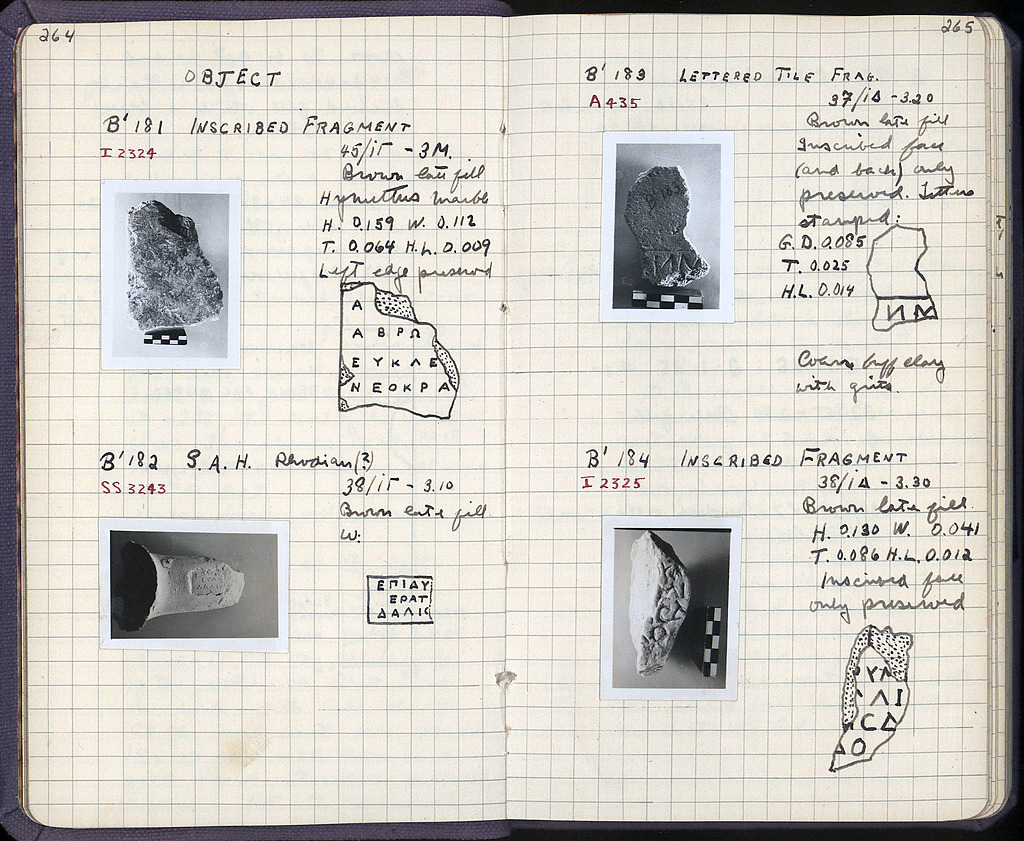 264
OBJECT
B' 181 INSCRIBED FRAGMENT
I 2324
45/ΙΓ - 3 M.
Brown late fill
Hymettus marble
H. 0.159 W. 0.112
T. 0.064 H.L. 0.009
Left edge preserved
Α
Α Β Ρ Ω
Ε Υ Κ Λ Ε
Ν Ε Ο Κ Ρ Α
B' 182 S. A. H. Rhodian (?)
SS 3243
38/ΙΓ - 3.10
Brown late fill
W:
ΕΠΙΔΥ
ΕΡΑΤ
ΔΑΛΙ
265
B' 183 LETTERED TILE FRAG.
A 435
37/ΙΔ - 3.20
Brown late fill
Inscribed face
(and back) only
preserved. Letters
stamped:
G. D. 0.085
T. 0.025
H.L. 0.014
Coarse buff clay
with grits.
B' 184 INSCRIBED FRAGMENT
I 2325
38/ΙΔ - 3.30
Brown late fill
H. 0.130 W. 0.041
T. 0.086 H.L. 0.012
Inscribed face
only preserved
ΛΙ
Ο